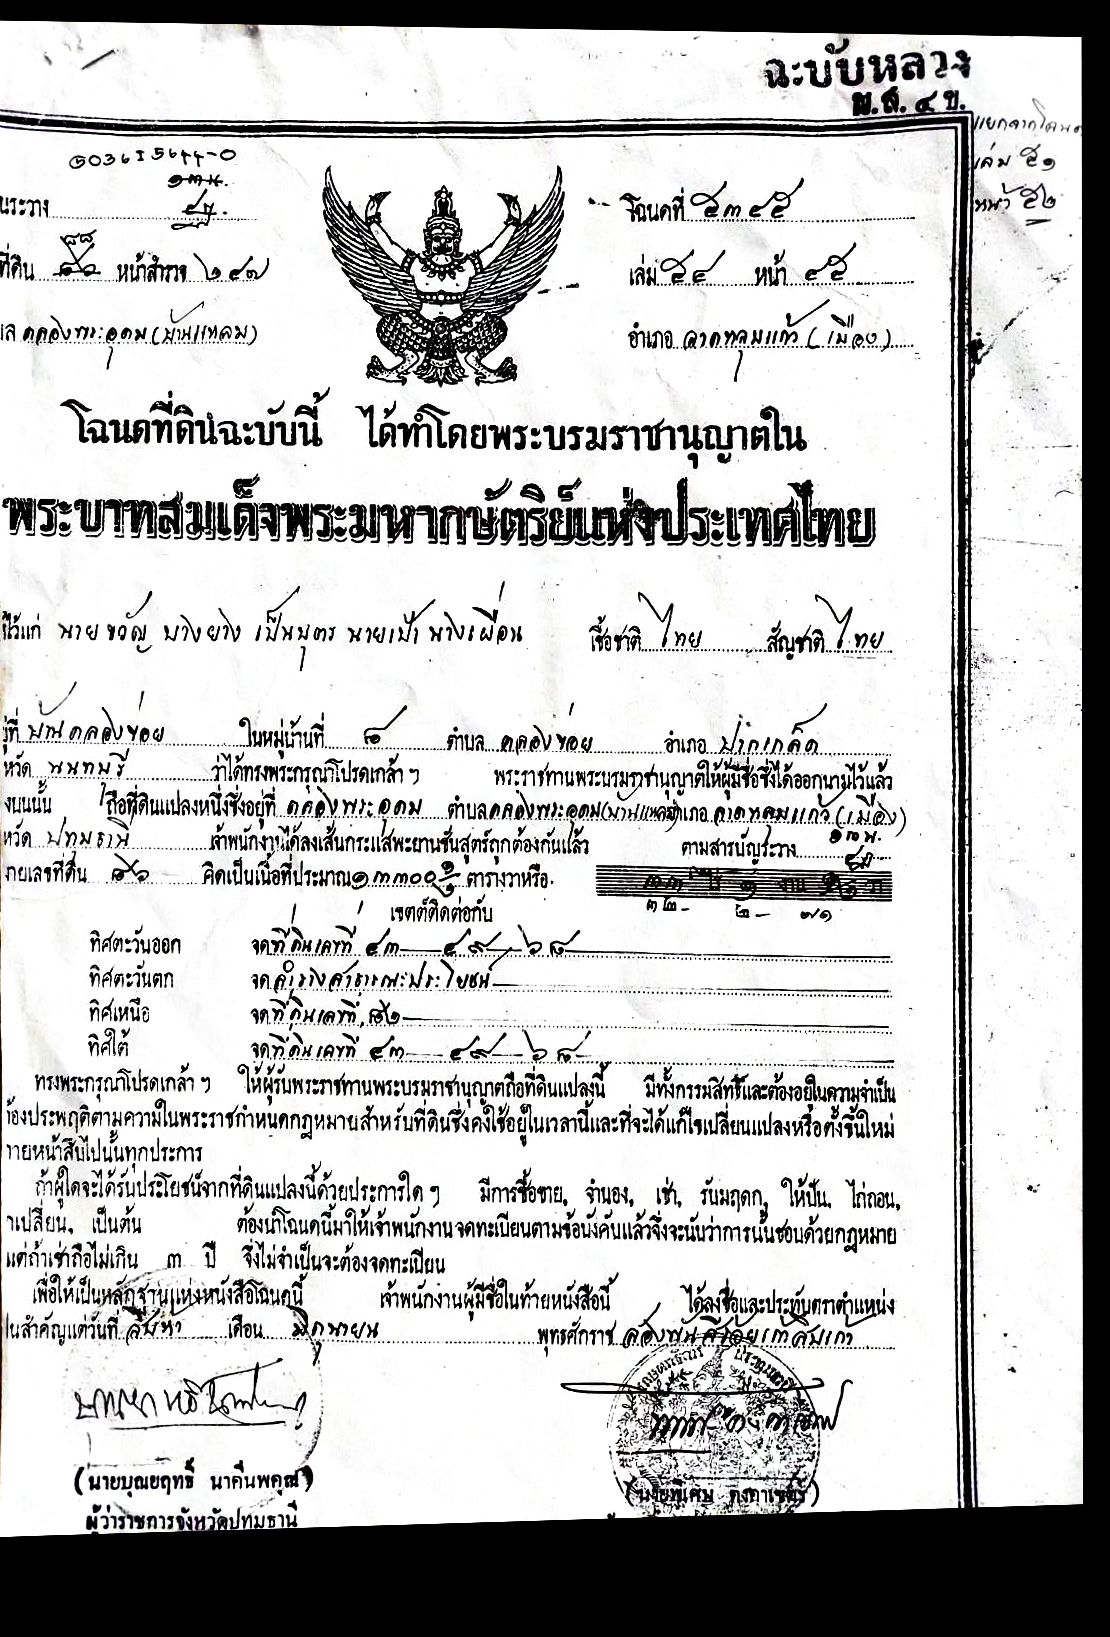 ฉะบับหลวง
ผ.ส. ๔ ข.
แยกจากโฉนด
เล่ม ๕๑
หน้า ๕๒
5036 I 5644-0
๑๓น.
นระวาง ๔ฎ.
โฉนดที่ ๕๓๔๕
๘๘
ที่ดิน ๘๖ หน้าสำรวจ ๒๔๗
เล่ม ๕๔ หน้า ๔๕
ล คลองพระอุดม (บ้านแหลม)
อำเภอ ลาดหลุมแก้ว (เมือง)
โฉนดที่ดินฉะบับนี้ ได้ทำโดยพระบรมราชานุญาตใน
พระบาทสมเด็จพระมหากษัตริย์แห่งประเทศไทย
ไว้แก่ นายขวัญ บางยาง เป็นบุตร นายเป้า นางเผื่อน เชื้อชาติ ไทย สัญชาติ ไทย
ยู่ที่ บ้านคลองข่อย ในหมู่บ้านที่ ๘ ตำบล คลองข่อย อำเภอ ปากเกล็ด
หวัด นนทบุรี ว่าได้ทรงพระกรุณาโปรดเกล้า ฯ พระราชทานพระบรมราชานุญาตให้ผู้มีชื่อซึ่งได้ออกนามไว้แล้ว
งบนนั้น ถือที่ดินแปลงหนึ่งซึ่งอยู่ที่ คลองพระอุดม ตำบลคลองพระอุดม(บ้านแหลม)อำเภอ ลาดหลุมแก้ว (เมือง)
หวัด ปทุมธานี เจ้าพนักงานได้ลงเส้นกระแสพะยานชันสูตร์ถูกต้องกันแล้ว ตามสารบัญระวาง ๑๓น. ๔ฎ.
ายเลขที่ดิน ๘๖ คิดเป็นเนื้อที่ประมาณ ตารางวาหรือ ไร่ งาน วา
๓๒- ๒- ๗๑
เขตต์ติดต่อกับ
ทิศตะวันออก จดที่ดินเลขที่ ๔๓—๔๙—๖๘
ทิศตะวันตก จดลำรางสาธารณะประโยชน์
ทิศเหนือ จดที่ดินเลขที่ ๘๒
ทิศใต้ จดที่ดินเลขที่ ๔๓—๔๙—๖๘
ทรงพระกรุณาโปรดเกล้า ฯ ให้ผู้รับพระราชทานพระบรมราชานุญาตถือที่ดินแปลงนี้ มีทั้งกรรมสิทธิ์และต้องอยู่ในความจำเป็น
้องประพฤติตามความในพระราชกำหนดกฎหมายสำหรับที่ดินซึ่งคงใช้อยู่ในเวลานี้และที่จะได้แก้ไขเปลี่ยนแปลงหรือตั้งขึ้นใหม่
ายหน้าสืบไปนั้นทุกประการ
ถ้าผู้ใดจะได้รับประโยชน์จากที่ดินแปลงนี้ด้วยประการใด ๆ มีการซื้อขาย, จำนอง, เช่า, รับมฤดก, ให้ปัน, ไถ่ถอน,
าเปลี่ยน, เป็นต้น ต้องนำโฉนดนี้มาให้เจ้าพนักงานจดทะเบียนตามข้อบังคับแล้วจึ่งจะนับว่าการนั้นชอบด้วยกฎหมาย
แต่ถ้าเช่าถือไม่เกิน ๓ ปี จึ่งไม่จำเป็นจะต้องจดทะเบียน
เพื่อให้เป็นหลักฐานแห่งหนังสือโฉนดนี้ เจ้าพนักงานผู้มีชื่อในท้ายหนังสือนี้ ได้ลงชื่อและประทับตราตำแหน่ง
ป็นสำคัญแต่วันที่ สิบห้า เดือน มิถุนายน พุทธศักราช สองพันสี่ร้อยเก้าสิบเก้า
(นายบุณยฤทธิ์ นาคีนพคุณ)
(นายพิเศษ คงคาเขตร์)
ผู้ว่าราชการจังหวัดปทุมธานี